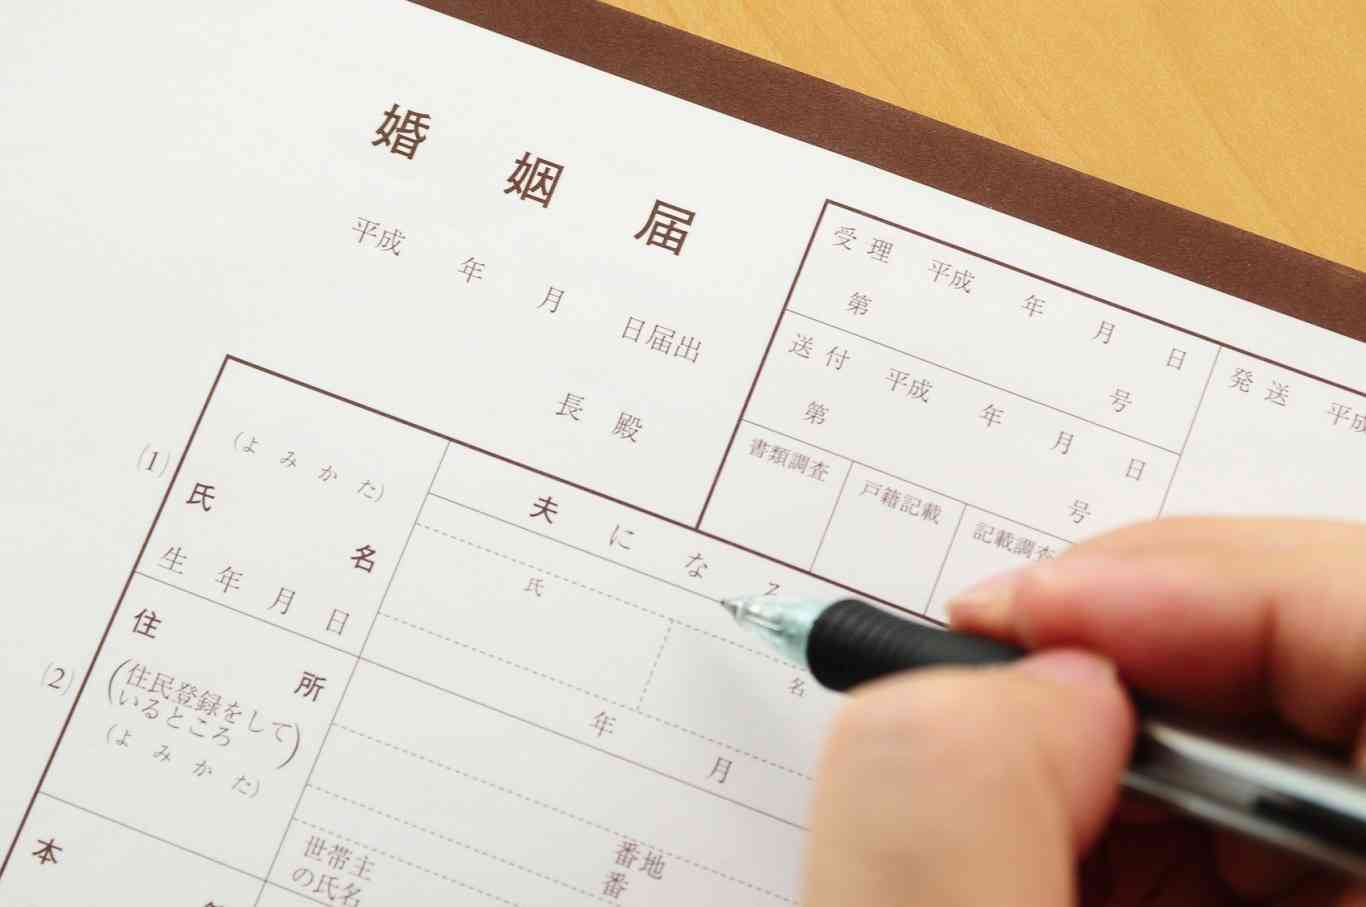 婚姻届
平成 年 月 日届出
長 殿
受理 平成 年 月 日
第 号
送付 平成 年 月 日
第 号
発送 平成
書類調査 戸籍記載 記載調査
(1)
(よみかた)
氏 名
生年月日
夫になる
氏
名
年 月
(2)
住 所
(住民登録をして
いるところ)
(よみかた)
番地
番
世帯主
の氏名
本